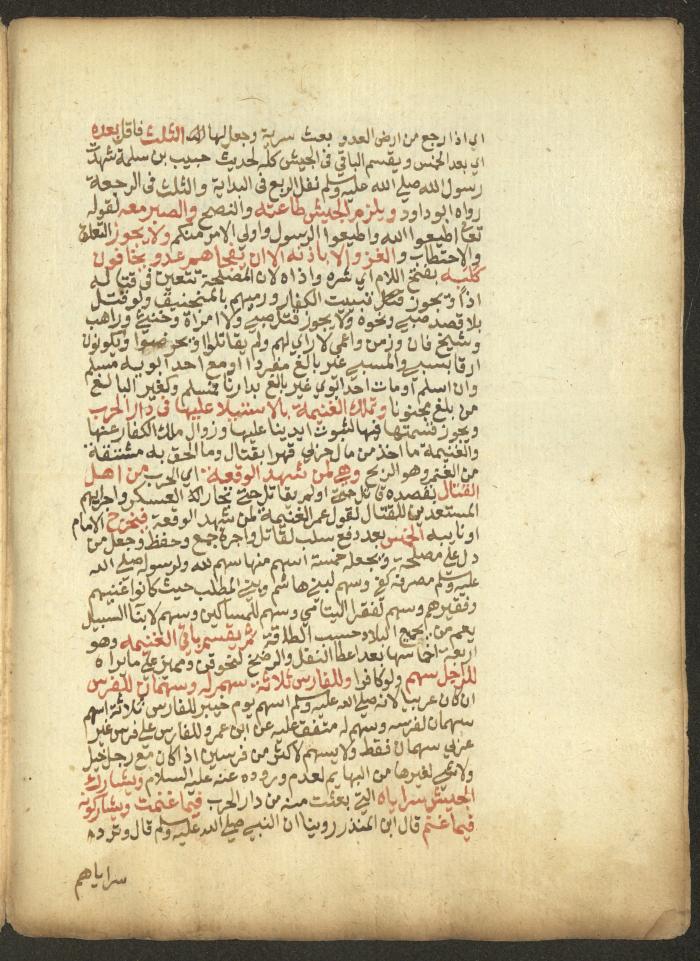 اي اذا رجع من ارض العدو بعث سرية وجعل لها الثلث فاقل بعده
اي بعد الخمس ويقسم الباقي في الجيش كله لحديث حبيب بن سلمة شهدت
رسول الله صلي الله عليه وسلم نفل الربع في البداية والثلث في الرجعة
رواه ابو داود ويلزم الجيش طاعته والنصح والصبر معه لقوله
تعا اطيعوا الله واطيعوا الرسول واولي الامر منكم ولا يجوز التعلف
والاحتطاب والغزو الا باذنه الا ان يفجاهم عدو يخافون
كلبه بفتح اللام اي شره واذاه لان المصلحة تتعين في قتاله
اذا ويجوز تبييت الكفار ورميهم بالمنجنيق ولو قتل
بلا قصد صبي ونحوه ولا يجوز قتل صبي ولا امراة وخنثي وراهب
وشيخ فان وزمن واعمي لا راي لهم ولم يقاتلوا او يحرضوا ويكونون
ارقا بسبي والمسبي غير بالغ منفردا او مع احد ابويه مسلم
وان اسلم او مات احد ابوي غير بالغ بدارنا فمسلم وكغير البالغ
من بلغ مجنونا وتملك الغنيمة بالاستيلا عليها في دار الحرب
ويجوز قسمتها فيها لثبوت ايدينا عليها وزوال ملك الكفار عنها
والغنيمة ما اخذ من مال حربي قهرا بقتال وما الحق به مشتقة
من الغنم وهو الربح وهي لمن شهد الوقعة اي الحرب من اهل
القتال بقصده قاتل او لم يقاتل حتي تجار العسكر واجرايهم
المستعدين للقتال لقول عمر الغنيمة لمن شهد الوقعة فيخرج الامام
او نايبه الخمس بعد دفع سلب لقاتل واجرة جمع وحفظ وجعل من
دل علي مصلحة ويجعله خمسة اسهم منها سهم لله ولرسوله صلي الله
عليه وسلم مصرفه كفي وسهم لبني هاشم وبني المطلب حيث كانوا غنيهم
وفقيرهم وسهم لفقرا اليتامي وسهم للمساكين وسهم لابنا السبيل
يعم من بجميع البلاد حسب الطاقة ثم يقسم باقي الغنيمة وهو
اربعة اخماسها بعد اعطا النفل والرضخ لنحو قن ومميز علي ما يراه
للراجل سهم ولو كافرا وللفارس ثلاثة سهم له وسهمان لفرسه
ان كان عربيا لانه صلي الله عليه وسلم اسهم يوم خيبر للفارس ثلاثة اسهم
سهمان لفرسه وسهم له متفق عليه عن ابن عمر وللفارس علي فرس غير
عربي سهمان فقط ولا يسهم لاكثر من فرسين اذا كان مع رجل خيل
ولا شي لغيرها من البهايم لعدم وروده عنه عليه السلام ويشارك
الجيش سراياه التي بعثت منه من دار الحرب فيما غنمت ويشاركونه
فيما غنم قال ابن المنذر روينا ان النبي صلي الله عليه وسلم قال وترد
سراياهم